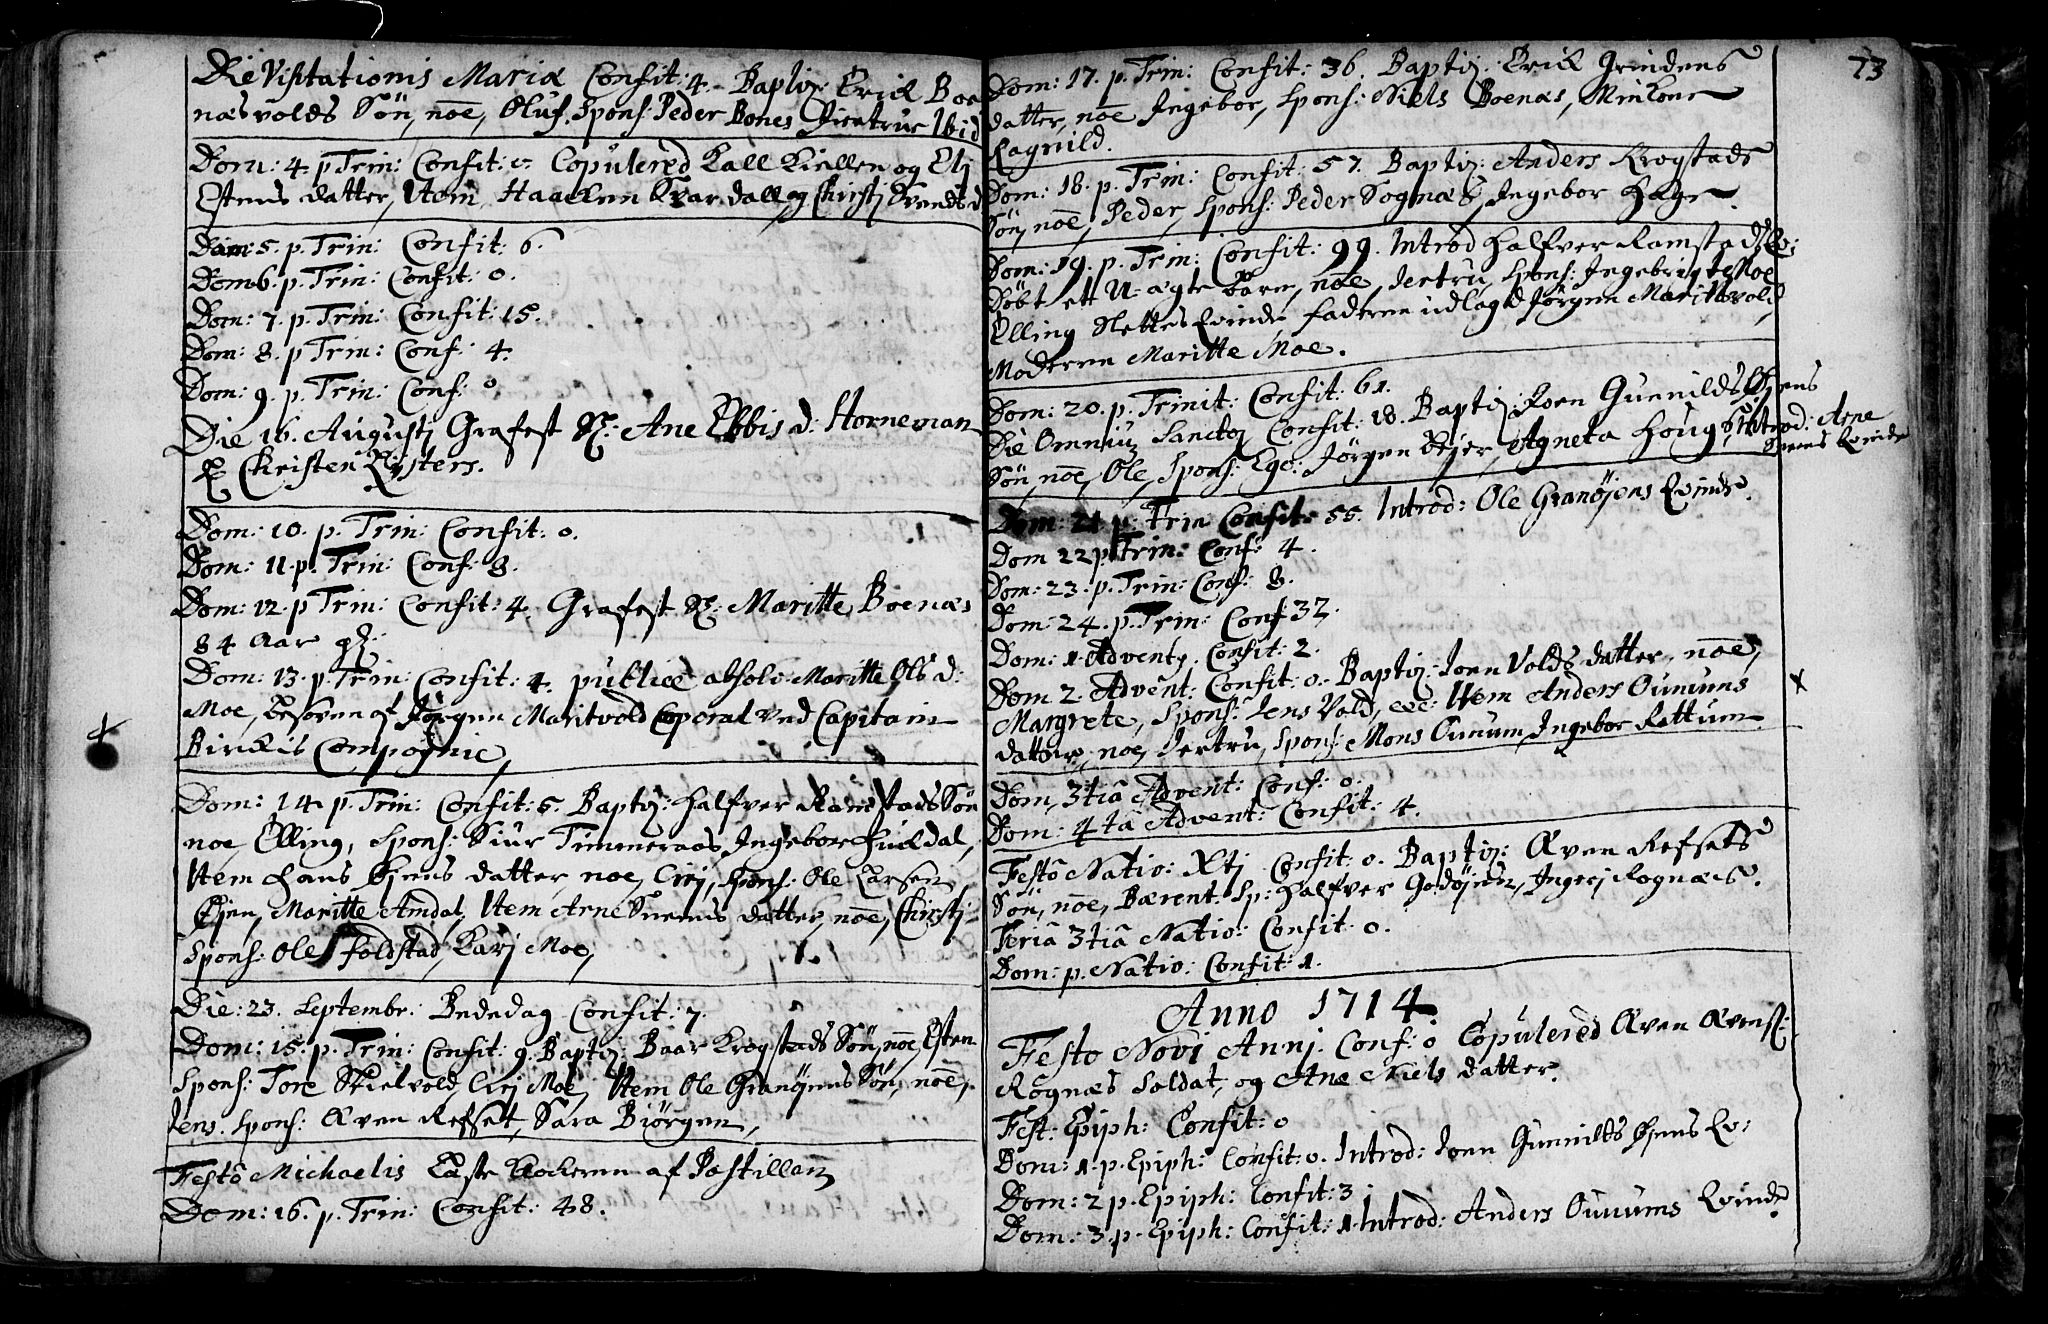 Die Visitationis Mariæ Confit: 4. Baptiz: Erick Boe
næsvolds Søn, noe, Oluf. Spons: Peder Bones Jiertrue Ibid
Dom: 4. p Trin: Confit: 0. Copulered Kall Kiellen og Elj
Estens datter, Item Haachen Svardall og Christj Svends d
Dom 5. p. Trin: Confit: 6.
Dom 6. p. Trin: Confit: 0.
Dom: 7. p. Trin: Confit: 15.
Dom: 8. p Trin: Conf: 4.
Dom: 9. p. Trin: Conf: 0
Die 16. Augustj Grafest S: Ane Ebbis d: Horneman
S Christen Lysters.
Dom: 10. p. Trin: Confit: 0.
Dom: 11. p. Trin: Conf: 8.
Dom: 12. p Trin: Confit: 4. Grafest S: Maritte Boenæs
84 Aar gl:
Dom: 13. p. Trin: Confit: 4. publice absolv: Maritte Ols d:
Moe, besoven af Jørgen Maritvold Coporal ved Capitain
Birckis Compagnie,
Dom: 14. p. Trin: Confit: 6. Baptiz: Halfver Ramstads Søn
noe, Elling, Spons: Siur Timmeraas, Ingebor Hukdal,
Item Hans Øjens datter, noe, Cirj, Spons: Ole Larsen
Øjen, Maritte Amdal, Item Arne Snenis datter, noe, Christj
Spons: Ole Foldstad, Karj Moe,
Die: 23. Septembr: Bededag Confit: 7.
Dom: 15. p. Trin: Confit: 9. Baptiz: Baar Krogstads Søn, noe, Esten
Spons: Tore Skielvold, Cirj Moe, Item Ole Granøjens Søn, noe,
Jens. Spons: Even Refset, Sara Biørgen,
Festo Michaelis Læste klockeren af Postillen
Dom: 16. p. Trin: Confit: 48.
73
Dom: 17. p. Trin: Confit: 36. Baptiz: Erick Grindens
datter, noe Ingebor, Spons: Niels Boenæs, Min kone
Ragnild.
Dom: 18. p. Trin: Confit: 57. Baptiz: Anders Krogstads
Søn, noe, Peder, Spons: Peder Sognæs, Ingebor Hage
Dom: 19. p. Trin: Confit: 99. Introd Halfver Ramstads Qv:
Døbt ett U-ægte barn, noe, Jertru, Spons: Ingebrigt Moe
Elling Slettes Qvinde, faderen udlagd Jørgen Maritvold,
Moderen Maritte Moe.
Dom: 20. p. Trinit: Confit: 61.
Die Omniu Sanctoz Confit: 18. Baptiz: Joen Gunnilds Øjens
Søn, noe, Ole, Spons: Ego: Jørgen Bejer, Agneta Houg, Introd: Arne
Snenes Qvinde
Dom: 21 p. Trin Confit: 55. Introd: Ole Granøjens Qvinde.
Dom 22 p. Trin: Conf: 4.
Dom: 23. p. Trin: Conf: 8.
Dom: 24. p. Trin: Conf 32.
Dom: 1. Advent. Confit: 2.
Dom 2. Advent: Confit: 0. Baptiz: Joen Volds datter, noe,
Margrete, Spons: Jens Vold, etc: Item Anders Ounums
datter, noe, Jertru, Spons: Mons Ounum, Ingebor Rattum
Dom, 3tia Advent: Conf: 0.
Dom: 4ta Advent: Confit: 4.
Festo Nativ: Xtj Confit: 0. Baptiz: Even Refsets
Søn, noe, Bærent. Sp: Halfver Godøjen, Ingerj Rognæs.
Feria 3tia Nativ: Confit: 0.
Dom: p. Nativ: Confit: 1.
Anno 1714
Festo Novi Annj. Conf: 0 Copulered Even Evens:
Rognæs Soldat, og Ane Niels datter.
Fest: Epiph: Confit: 0
Dom: 1. p. Epiph: Confit: 0. Introd: Joen Gunnilds Øjens Qv:
Dom: 2 p. Epiph: Confit: 3
Dom: 3. p. Epiph: Confit: 1. Introd: Anders Ounums Qvinde